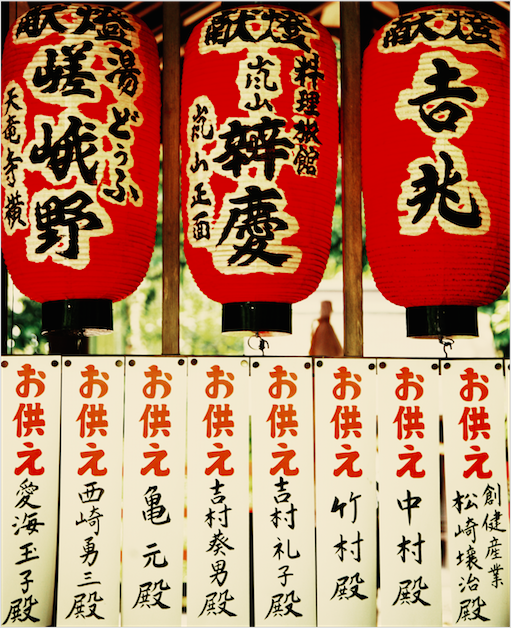 献燈
湯どうふ
嵯峨野
天竜寺横
献燈
料理旅館
嵐山
辨慶
嵐山正面
献燈
吉兆
お供え
愛海玉子殿
お供え
西崎勇三殿
お供え
亀元殿
お供え
吉村癸男殿
お供え
吉村礼子殿
お供え
竹村殿
お供え
中村殿
お供え
創健産業
松崎壌治殿